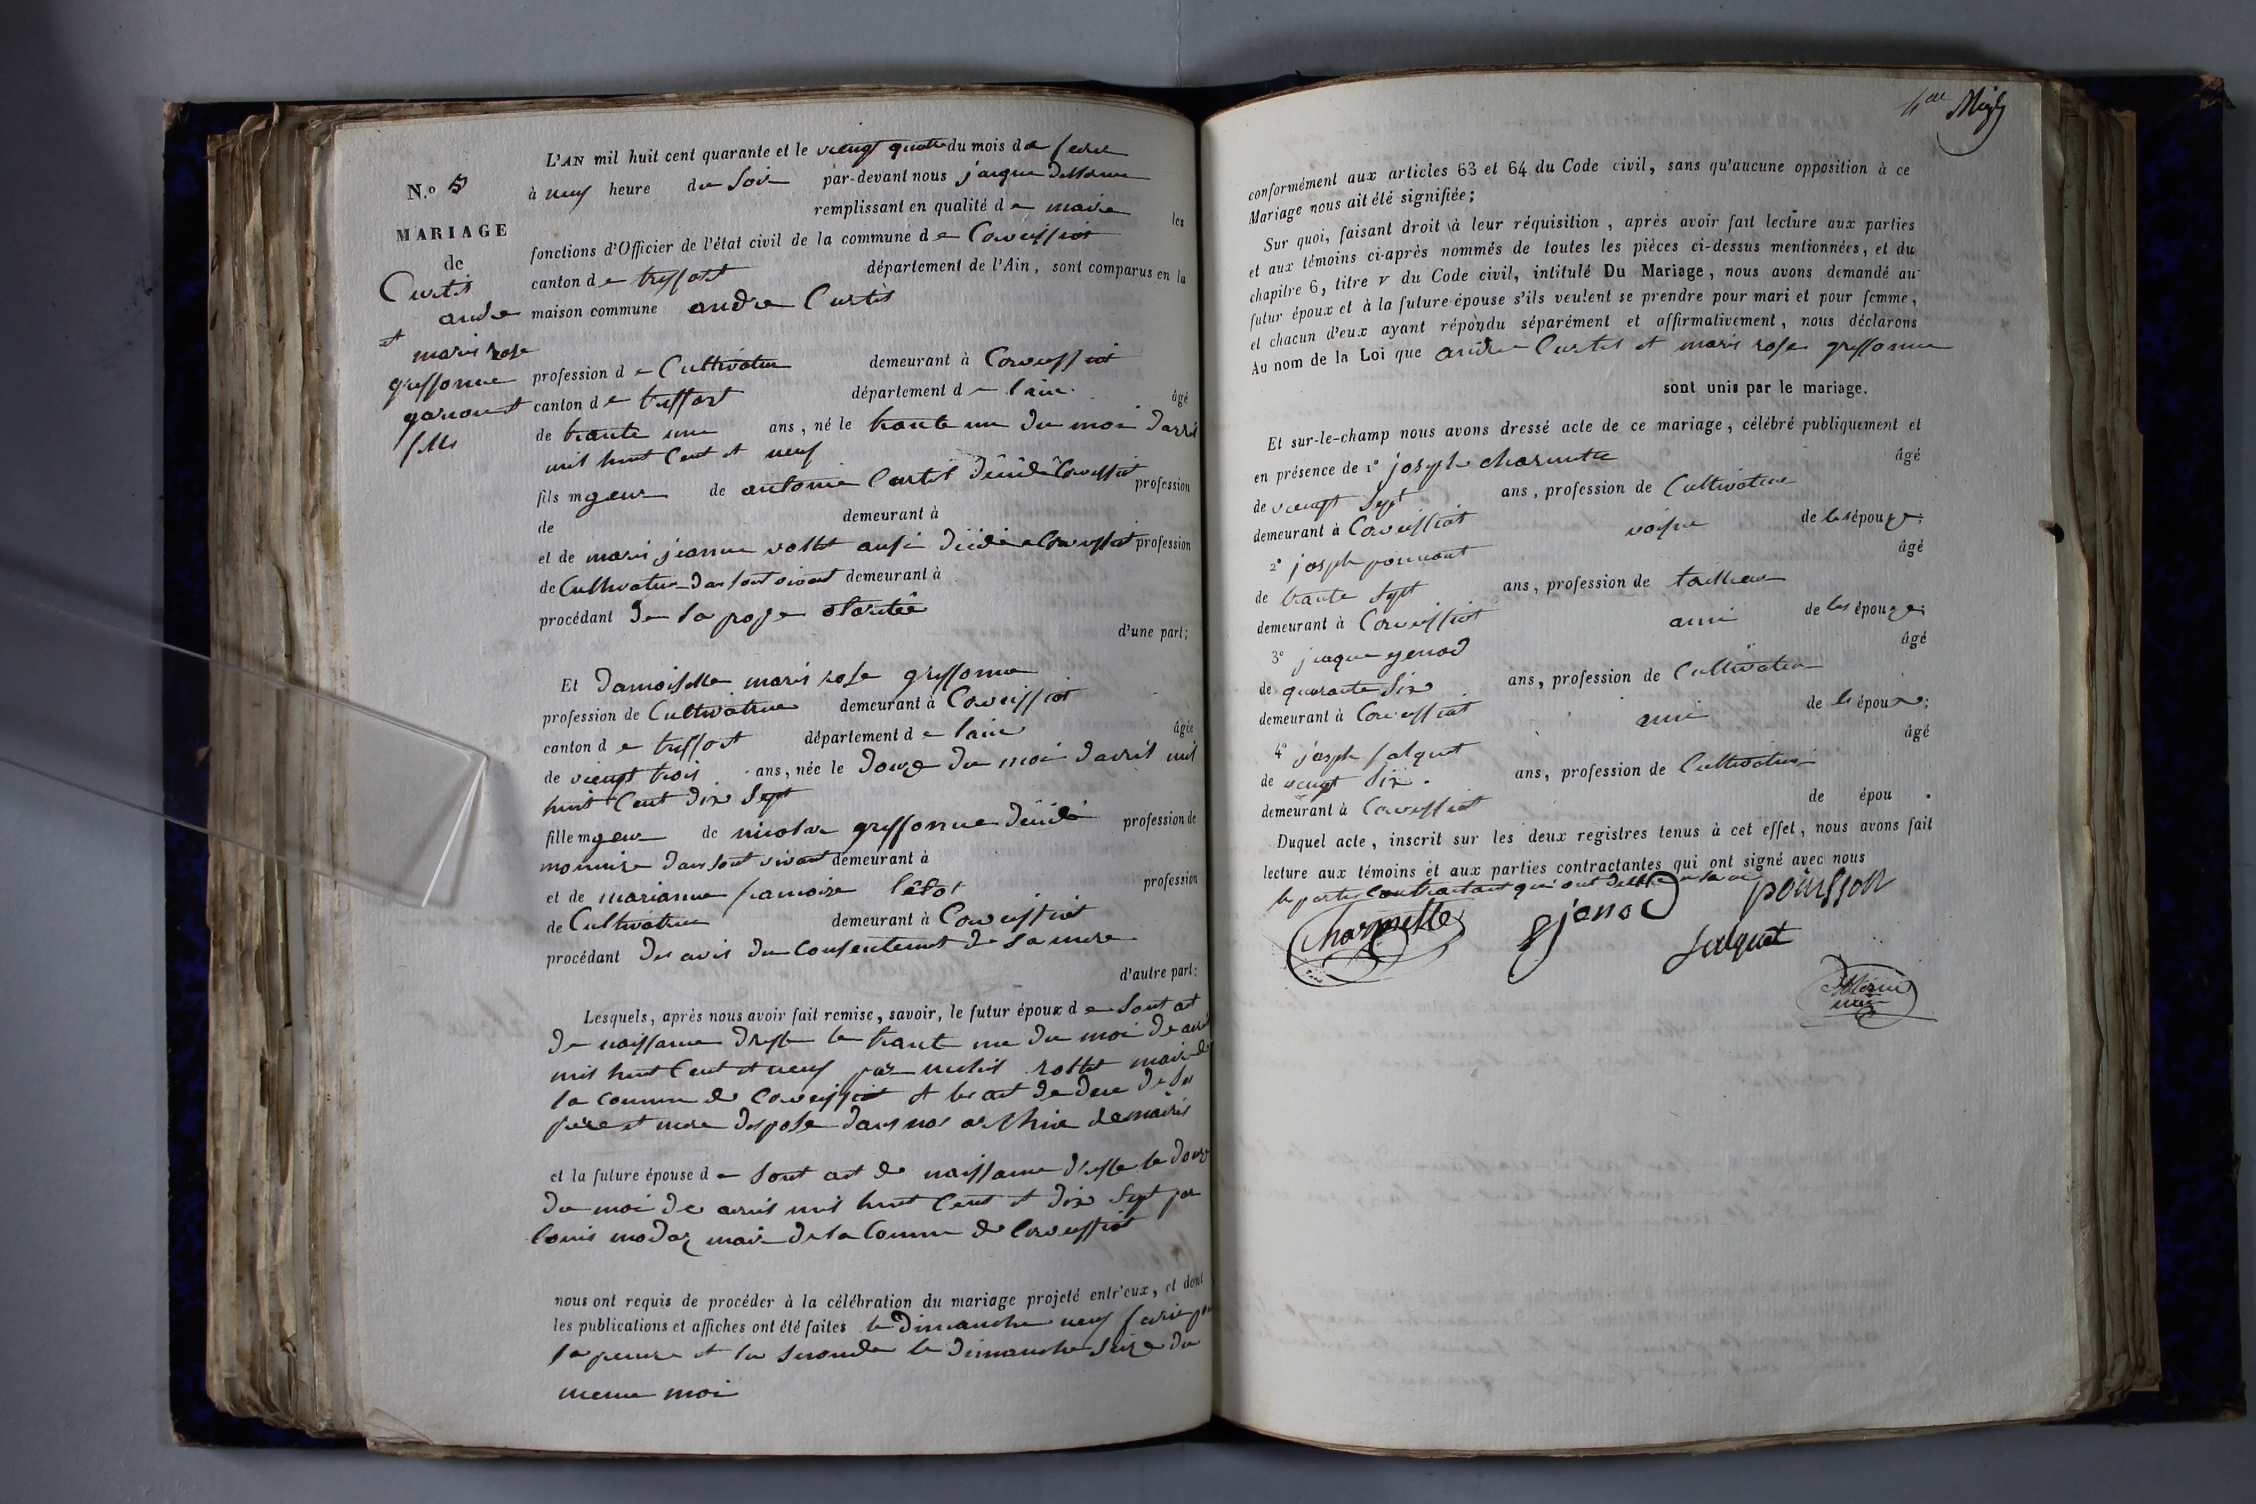 L'AN mil huit cent quarante et le viengt quatre du mois de
N.o 5
à neuf heure du Soir par-devant nous jacque
remplissant en qualité de maire les
MARIAGE
fonctions d'Officier de l'état civil de la commune de Corveissiat
de
canton de treffort département de l'Ain, sont comparus en la
Curtit
andre
maison commune andre Curtit
et marie rose
greffonne
profession de Cultivateur demeurant à Corveissiat
garcon et
canton de treffort département de lain âgé
fille
de trante une ans, né le trante un du moi davril
mil huit Cent et neuf
fils mgeur de antoine Curtit décédé Corveissiat profession
de demeurant à
et de marie jeanne rollet ausi décédé a Corveissiat profession
de Cultivateur dau sont vivant demeurant à
procédant de sa
d'une part;
Et damoiselle marie rose greffonne
profession de Cultivatrice demeurant à Corveissiat
canton de treffort département de lain âgée
de viengt trois ans, née le douze du moi davril mil
huit Cent dix Sept
fille mgeur de nicolas greffonne décédé profession de
dau sont vivant demeurant à
et de marianne francoise profession
de Cultivatrice demeurant à Corveissiat
procédant des avis du Consentement de sa mere
d'autre part;
Lesquels, après nous avoir fait remise, savoir, le futur époux de Sont act
de naissance dresse le trante une du moi de avril
mil huit Cent et neuf par rollet maire de
la comune de Corveissiat et les act de dece de ses
pere et mere depose dans nos archive de mairie
et la future épouse de Sont act de naissance dresse le douze
du moi de avril mil huit Cent et dix Sept par
louis modaz maire de la Comune de Corveissiat
nous ont requis de procéder à la célébration du mariage projeté entr'eux, et dont
les publications et affiches ont été faites le Dimanche neuf
la et la seconde le dimanche Seize du
meme moi
conformément aux articles 63 et 64 du Code civil, sans qu'aucune opposition à ce
Mariage nous ait été signifiée;
Sur quoi, faisant droit à leur réquisition, après avoir fait lecture aux parties
et aux témoins ci-après nommés de toutes les pièces ci-dessus mentionnées, et du
chapitre 6, titre V du Code civil, intitulé Du Mariage, nous avons demandé au
futur époux et à la future épouse s'ils veulent se prendre pour mari et pour femme,
et chacun d'eux ayant répondu séparément et affirmativement, nous déclarons
Au nom de la Loi que andre Curtit et marie rose greffonne
sont unis par le mariage.
Et sur-le-champ nous avons dressé acte de ce mariage, célébré publiquement et
en présence de 1° joseph charmette âgé
de viengt Sept ans, profession de Cultivateur
demeurant à Corveissiat voisin de les épouze;
2° joseph âgé
de trante Sept ans, profession de tailleur
demeurant à Corveissiat ami de les épouze;
3° jacque gjenod âgé
de quarante Six ans, profession de Cultivateur
demeurant à Corveissiat ami de les époux;
4° joseph falquet âgé
de viengt Six ans, profession de Cultivateur
demeurant à Corveissiat de épou .
Duquel acte, inscrit sur les deux registres tenus à cet effet, nous avons fait
lecture aux témoins et aux parties contractantes qui ont signé avec nous
Charmette gjenod
falquet